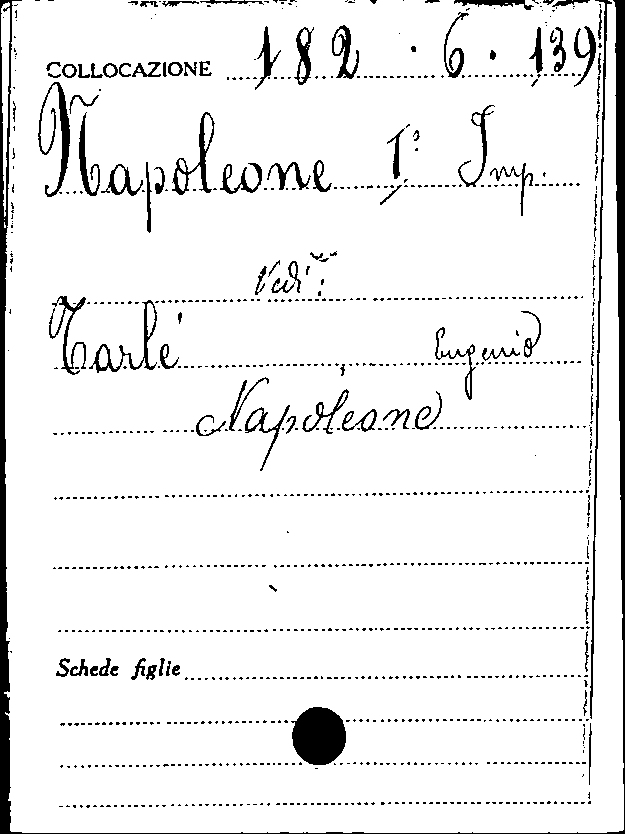 COLLOCAZIONE 182 · 6 · 139
Napoleone I° Imp.
Vedi:
Tarlé, Eugenio
Napoleone
Schede figlie